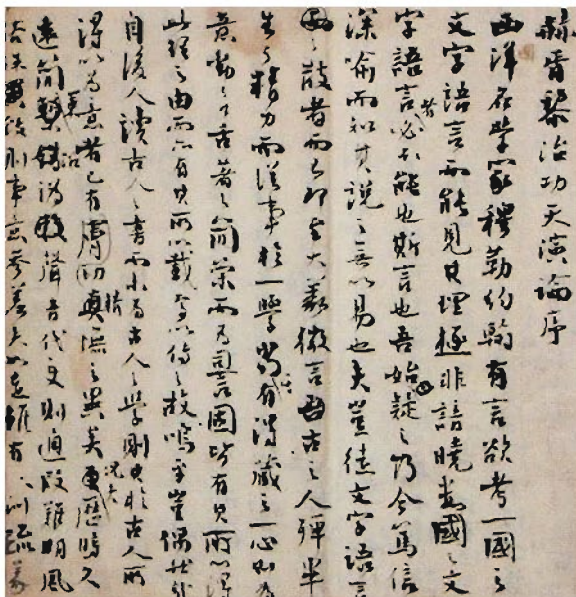 赫胥黎治功天演論序
西洋名學家穆勒約翰有言欲考一國之
文字語言而能見其理極非諳曉數國之文
字語言者必不能也斯言也吾始疑之乃今篤信
深喻而知其說之無以易也夫豈徒文字語言
之散者而已即至大義微言古之人殫畢
生之精力而從事於一學當有得藏之一心則為
意動之口舌著之簡策而為言固皆有其所以得
此理之由而亦有其所以載焉以傳之故嗚呼豈偶然哉
自後人讀古人之書而未為古人之學則其於古人所
得以為意者已有膚切真憮之異矣況夫更歷時久
遠簡牘錯譌聲音代變則通假難明風
俗殊致則事意參差夫如是雖有訓疏義